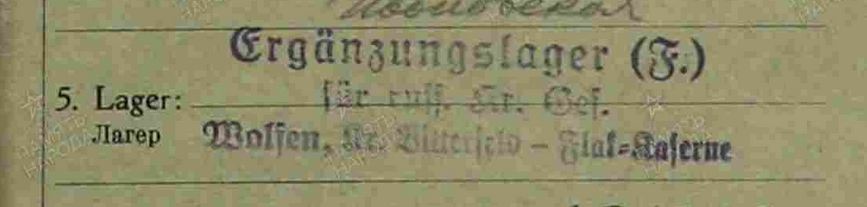 Ergänzungslager (F.)
5. Lager: für russ. Kr. Gef.
Лагер Wolfen, Kr. Bitterfeld – Flak-Kaserne